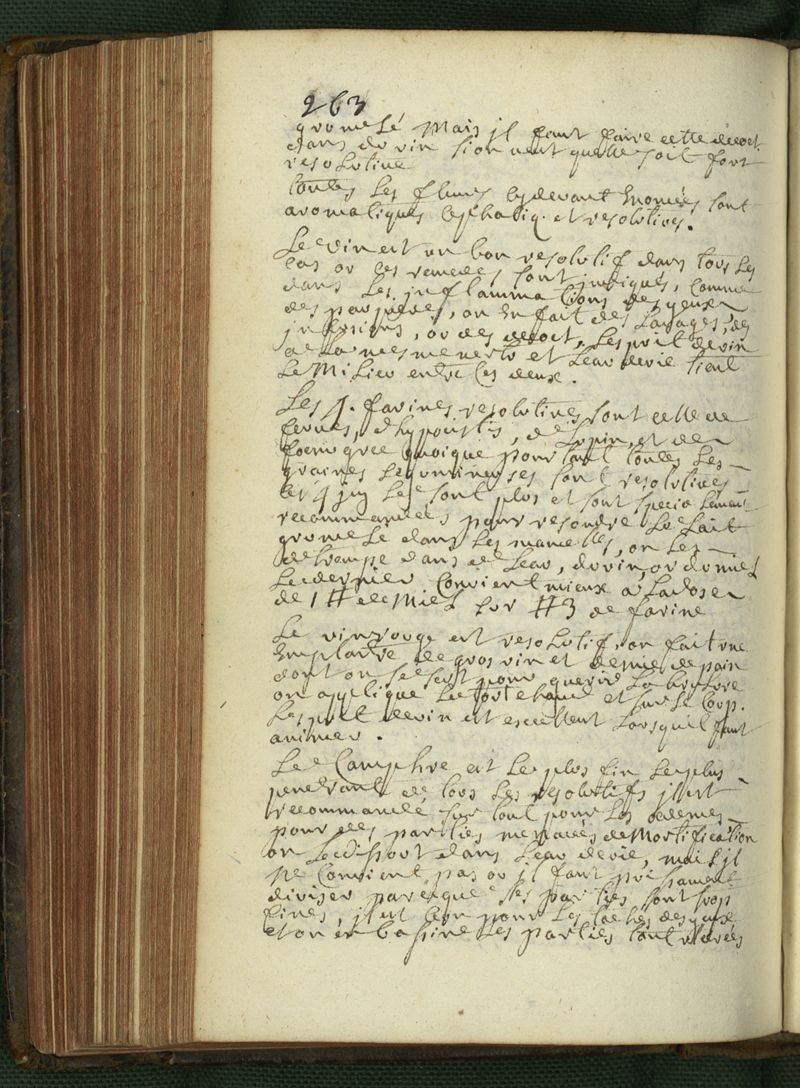 263
gromelé Mais jl faut faire cette decoct.
dans du vin sion veut quelle soit fort
resolutive
toutes les fleurs cydevant énoncées sont
aromatiques cephaliq. et resolutives.
Le vin est un bon resolutif dans tous les
cas ou les remedes sont jndiqués, comme
dans les jnflammations des yeux
des paupieres, on en fait des Lavages, des
jnfusions, ou des decoct, Lesprit de vin
a la mesme vertu et Leau devie tient
Le Milieu entre les deux.
Les 4. farines resolutives sont celle de
febves, dhypocistis, de Lupin, et de
foenogrec quoique pourtant toutes les
graines Legumineuses sont resolutives
les 4 jcy le sont plus et sont specialement
recommandées pour resoudre Le Lait
gromelé dans les mamelles, on les
detrempe dans de Leau, du vin, ou du miel
Le dernier Convient mieux a La dose
de 1 # de Miel sur # 3 de farine
Le vin rouge est resolutif, on fait une
Emplatre de gros vin et demie de pain
dont on se sert pour guerir La brulure
on applique Le tout chaud et sur Le Corp.
Lesprit de vin est excellent Lorsquil faut
animer.
Le Camphre est Le plus fin Le plus
penetrant de tous Les resolutifs jl est
recommandé sur tout pour Les oedemes
pour des parties menacées de Mortification
on Le dissout dans Leau devie, mais jl
ne Convient pas ou jl faut
diviser parceque ses parties sont trop
fines, jl est bon pour Les taches des yeux
et on en bassine Les parties